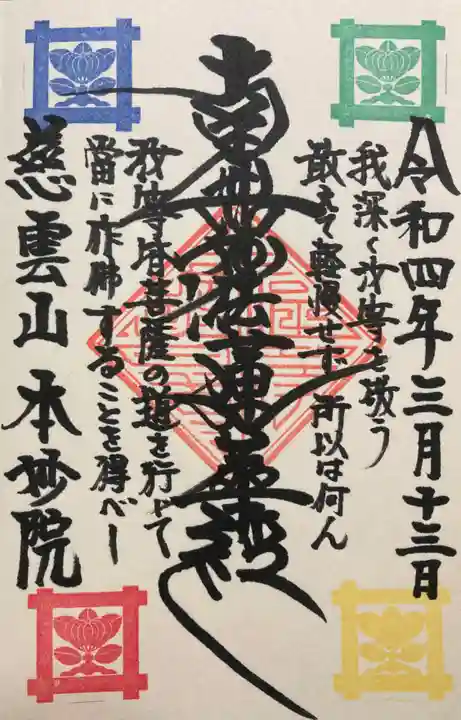 令和四年三月十三日
我深く汝等を敬う
敢えて軽慢せず所以は何ん
南無妙法蓮華経
汝等皆菩薩の道を行じて
當に作佛することを得べし
慈雲山本妙院